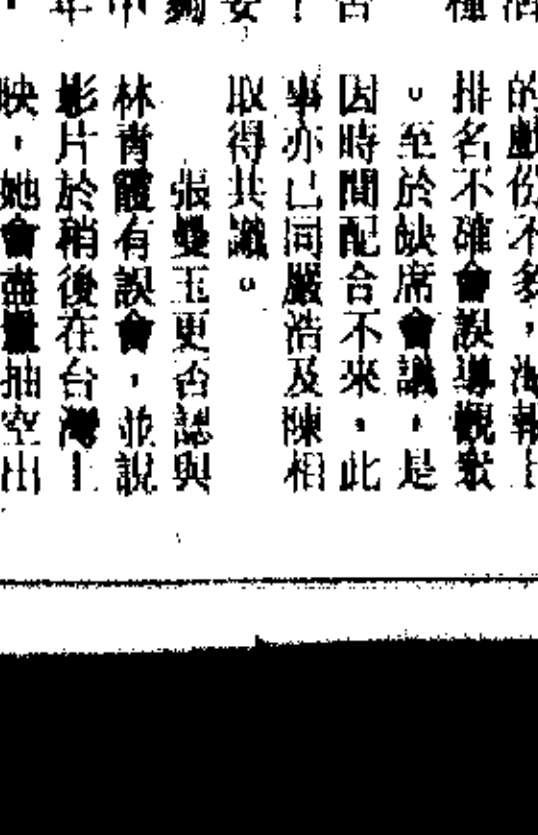 的戲份不多，海報上
排名不確會誤導觀眾
。至於缺席會議，是
因時間配合不來，此
事亦已同嚴浩及陳相
取得共識。
張雙玉更否認與
林青霞有誤會，並說
影片於稍後在台灣上
映，她會盡量抽空出